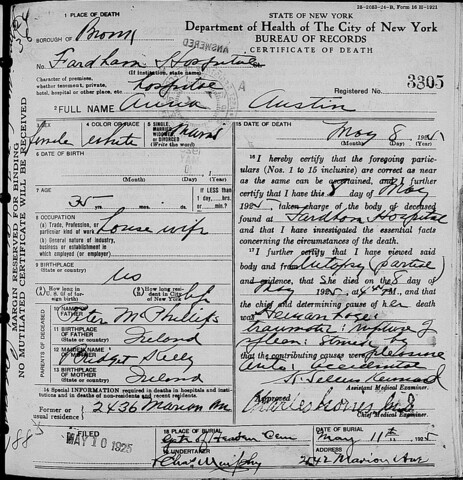 28-2083-24-B, Form 16 H-1921
1 PLACE OF DEATH
STATE OF NEW YORK
Department of Health of The City of New York
BUREAU OF RECORDS
CERTIFICATE OF DEATH
BOROUGH OF Bronx
No. Fordham Hospital
Character of premises, (If institution, state name)
whether tenement, private,
hospital or other place, etc. hospital
Registered No. 3305
2 FULL NAME Anna Austin
3 SEX female
4 COLOR OR RACE white
5 SINGLE, MARRIED, WIDOWED OR DIVORCED (Write the word)
15 DATE OF DEATH
May 8 1925
(Month) (Day) (Year)
6 DATE OF BIRTH
(Month) (Day) (Year)
7 AGE
35 yrs. mos. ds.
If LESS than 1 day, hrs. or min.
8 OCCUPATION
(a) Trade, Profession, or
particular kind of work house wife
(b) General nature of industry,
business or establishment in
which employed (or employer)
9 BIRTHPLACE
(State or country) US
(A) How long in U.S. (if of foreign birth)
(B) How long resident in City of New York life
10 NAME OF FATHER Peter McPhillips
11 BIRTHPLACE OF FATHER (State or country) Ireland
12 MAIDEN NAME OF MOTHER Bridget
13 BIRTHPLACE OF MOTHER (State or country) Ireland
14 Special information required in deaths in hospitals and institutions and in deaths of non-residents and recent residents.
Former or usual residence 2436 Marion Ave
16 I hereby certify that the foregoing particulars
(Nos. 1 to 15 inclusive) are correct as near
as the same can be ascertained, and I further
certify that I have this 8 day of May
1925, taken charge of the body of deceased
found at Fordham Hospital
and that I have investigated the essential facts
concerning the circumstances of the death.
17 I further certify that I have viewed said
body and from Autopsy (partial)
and evidence, that She died on the 8 day
of May 1925, at M., and that
the chief and determining cause of her death
was Hemorrhage
traumatic rupture of
spleen: struck by
that the contributing causes were pleasure
auto: accidental
Assistant Medical Examiner.
Approved
Chief Medical Examiner.
FILED
MAY 10 1925
18 PLACE OF BURIAL
Gate of Heaven Cem
DATE OF BURIAL
May 11th 1925
19 UNDERTAKER
Chas Murphy
ADDRESS
2542 Marion Ave
MARGIN RESERVED FOR BINDING
NO MUTILATED CERTIFICATE WILL BE RECEIVED
ANSWERED